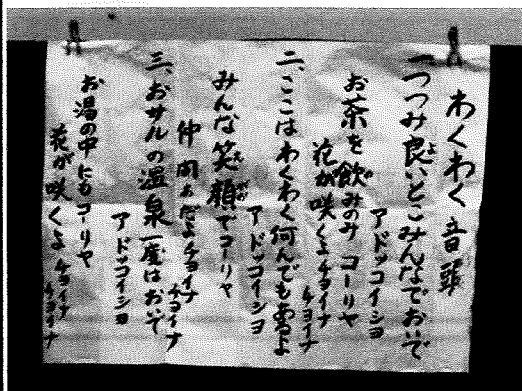 わくわく音頭
一、つつみ良いとこみんなでおいで
アドッコイショ
お茶を飲みのみ コーリャ
花が咲くよチョイナチョイナ
二、ここはわくわく何んでもあるよ
アドッコイショ
みんな笑顔でコーリャ
仲間だよチョイナチョイナ
三、おサルの温泉一度はおいで
アドッコイショ
お湯の中にもコーリャ
花が咲くよチョイナチョイナ